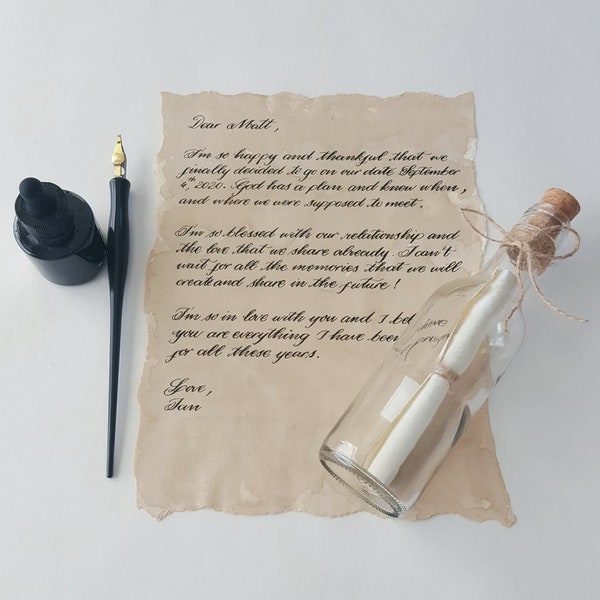 Dear Matt,
I'm so happy and thankful that we
finally decided to go on our date September
4,th 2020. God has a plan and knew when,
and where we were supposed to meet.
I'm so blessed with our relationship and
the love that we share already. I can't
wait for all the memories that we will
create and share in the future!
I'm so in love with you and I believe
you are everything I have been
for all these years.
Love,